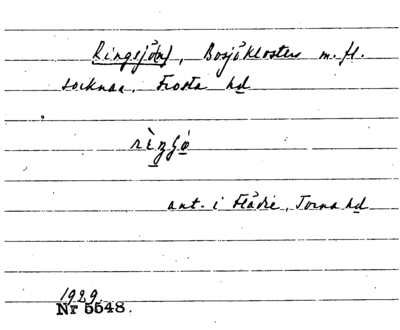 Ringsjö(n), Bosjöklosters m. fl.
socknar, Frosta hd
ant. i Flädie, Torna hd
1929
Nr 5548.